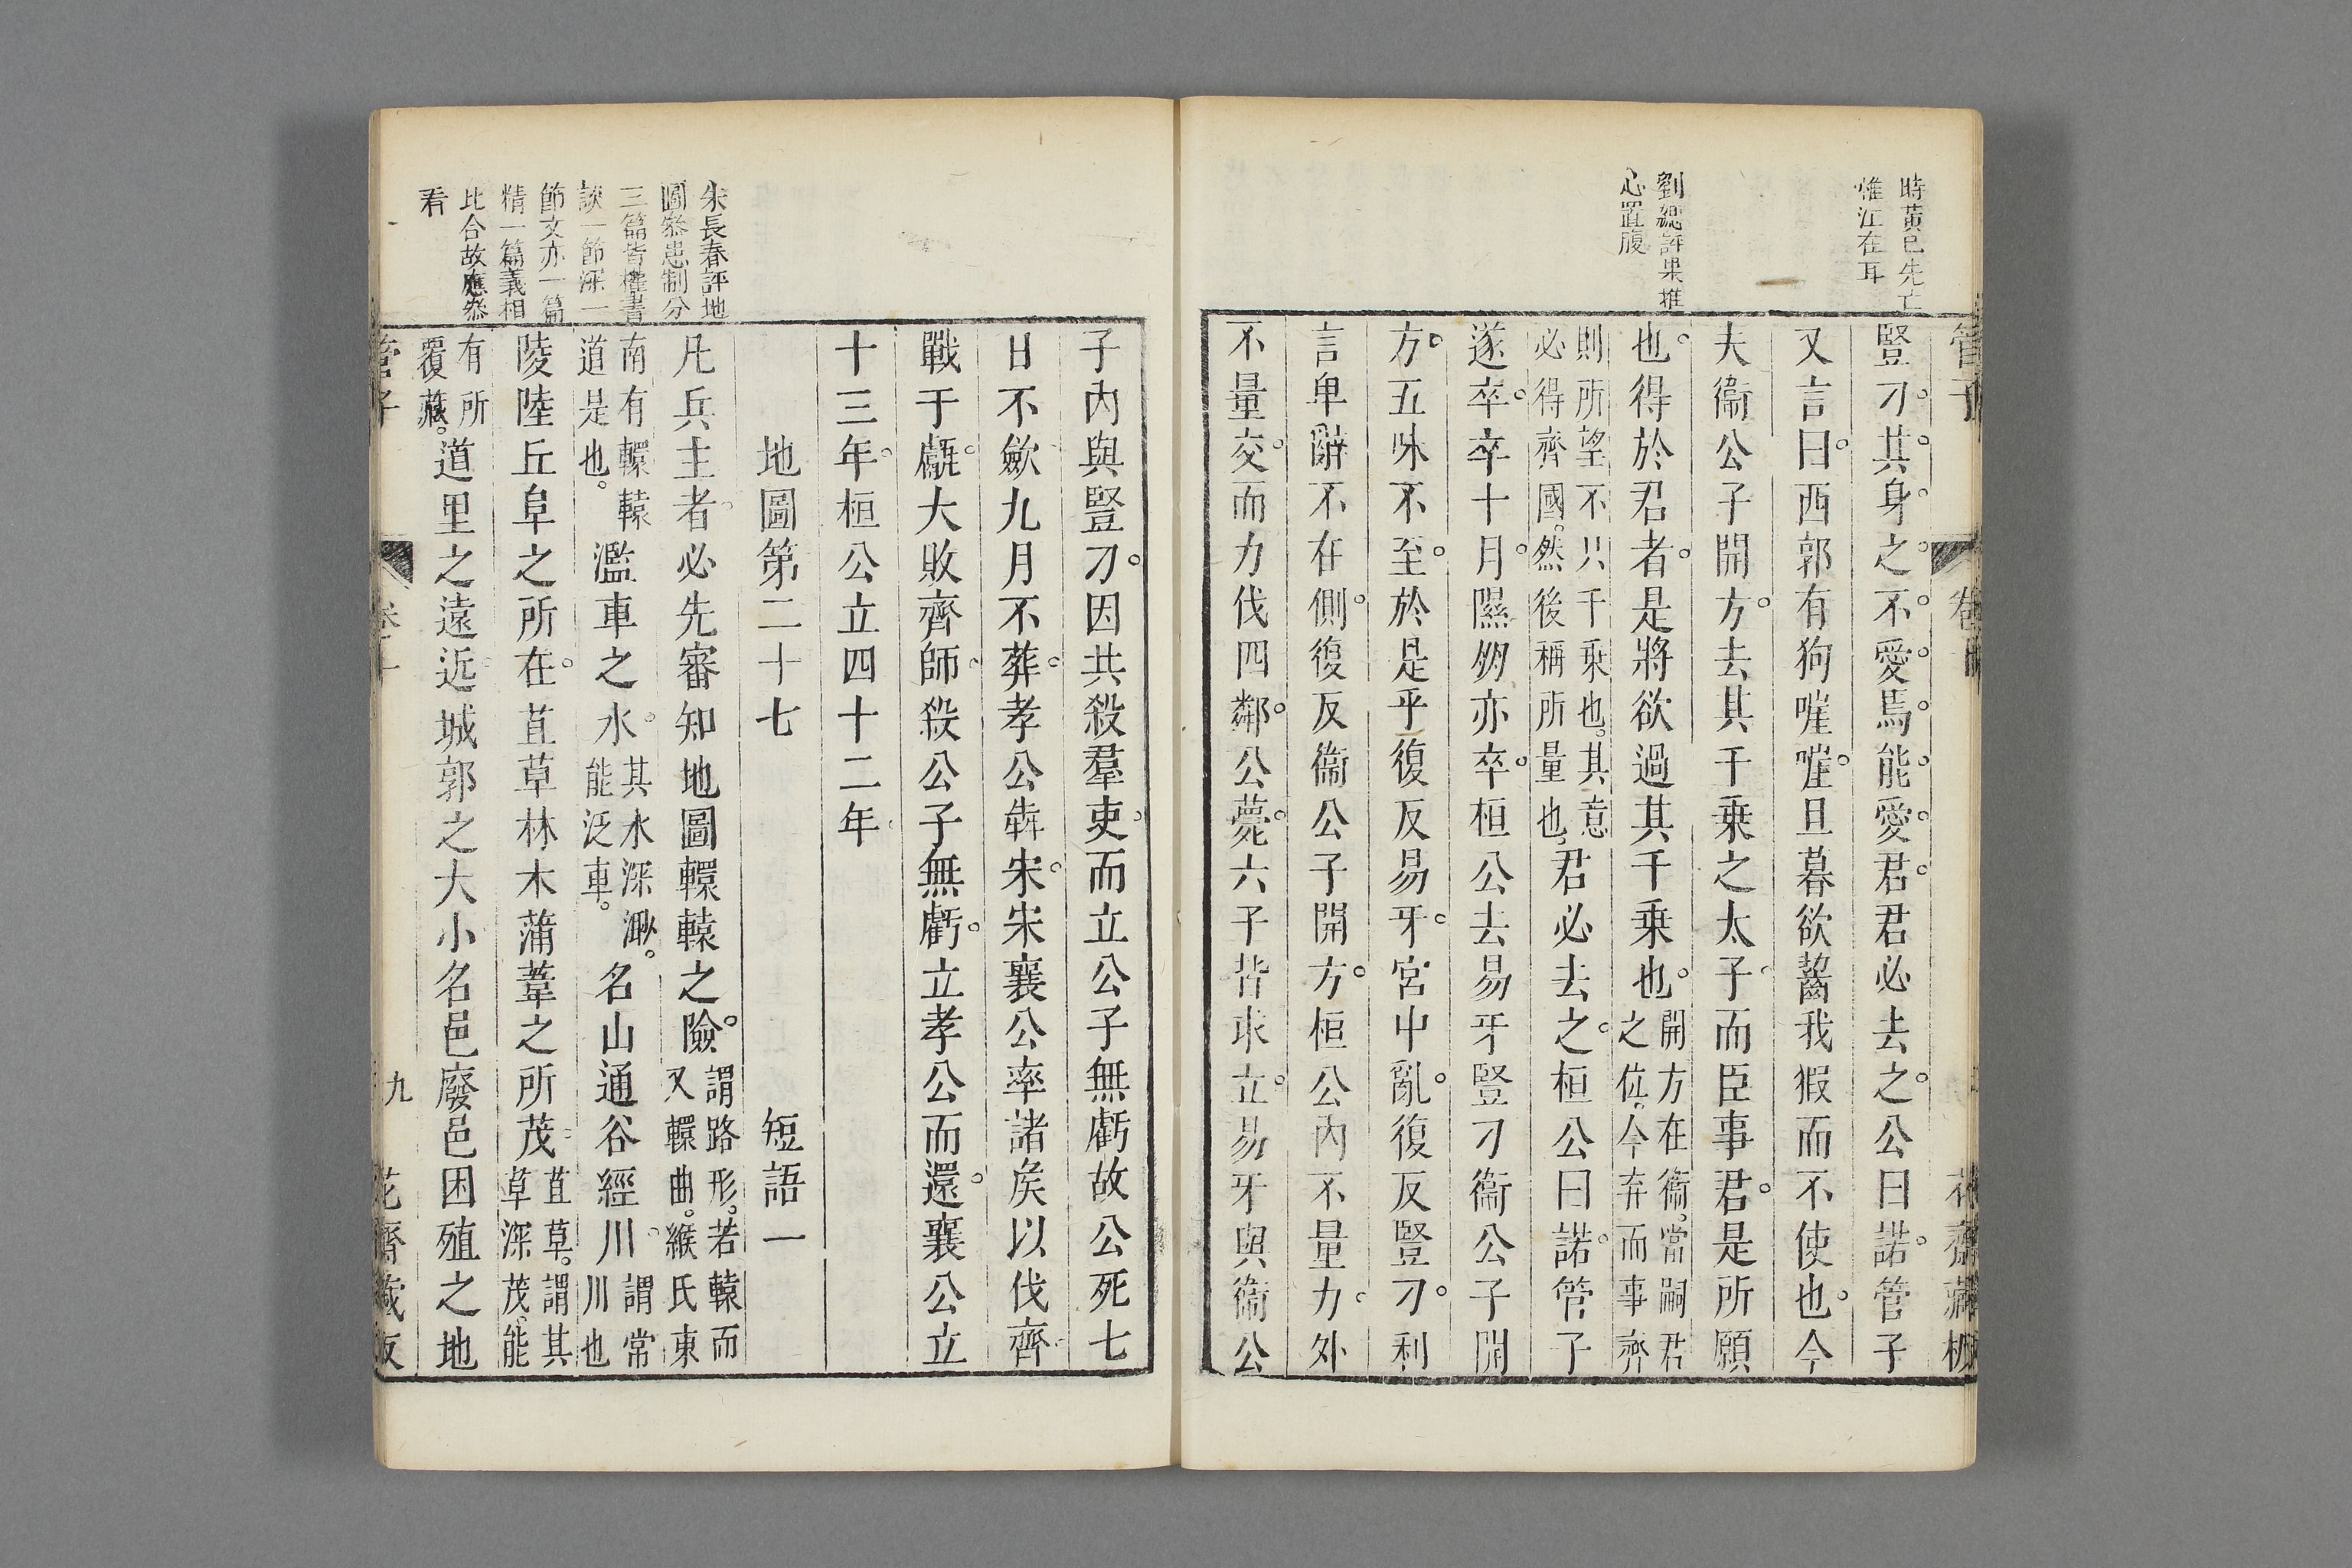 時黃已先亡
惟江在耳
劉總評果推
心置腹
管子
卷
花齋藏板
豎刁其身之不愛焉能愛君君必去之公曰諾管子
又言曰西郭有狗嘊嘊旦暮欲齧我猳而不使也今
夫衞公子開方去其千乗之太子而臣事君是所願
也得於君者是將欲過其千乗也開方在衞當嗣君
之位今弃而事齊
則所望不只千乗也其意
必得齊國然後稱所量也君必去之桓公曰諾管子
遂卒卒十月隰朋亦卒桓公去易牙豎刁衞公子開
方五味不至於是乎復反易牙宮中亂復反豎刁利
言卑辭不在側復反衞公子開方桓公內不量力外
不量交而力伐四鄰公薨六子皆求立易牙與衞公
子內與豎刁因共殺羣吏而立公子無虧故公死七
日不歛九月不葬孝公犇宋宋襄公率諸矦以伐齊
戰于甗大敗齊師殺公子無虧立孝公而還襄公立
十三年桓公立四十二年
地圖第二十七
短語一
朱長春評地
圖叅患制分
三篇皆權書
談一節深一
節文亦一篇
精一篇義相
比合故應叅
看
凡兵主者必先審知地圖轘轅之險謂路形若轅而
又轘曲緱氏東
南有轘轅
道是也濫車之水其水深渺
能泛車名山通谷經川謂常
川也
陵陸丘阜之所在苴草林木蒲葦之所茂苴草謂其
草深茂能
有所
覆藏道里之遠近城郭之大小名邑廢邑困殖之地
管子
卷十
九
花齋藏板